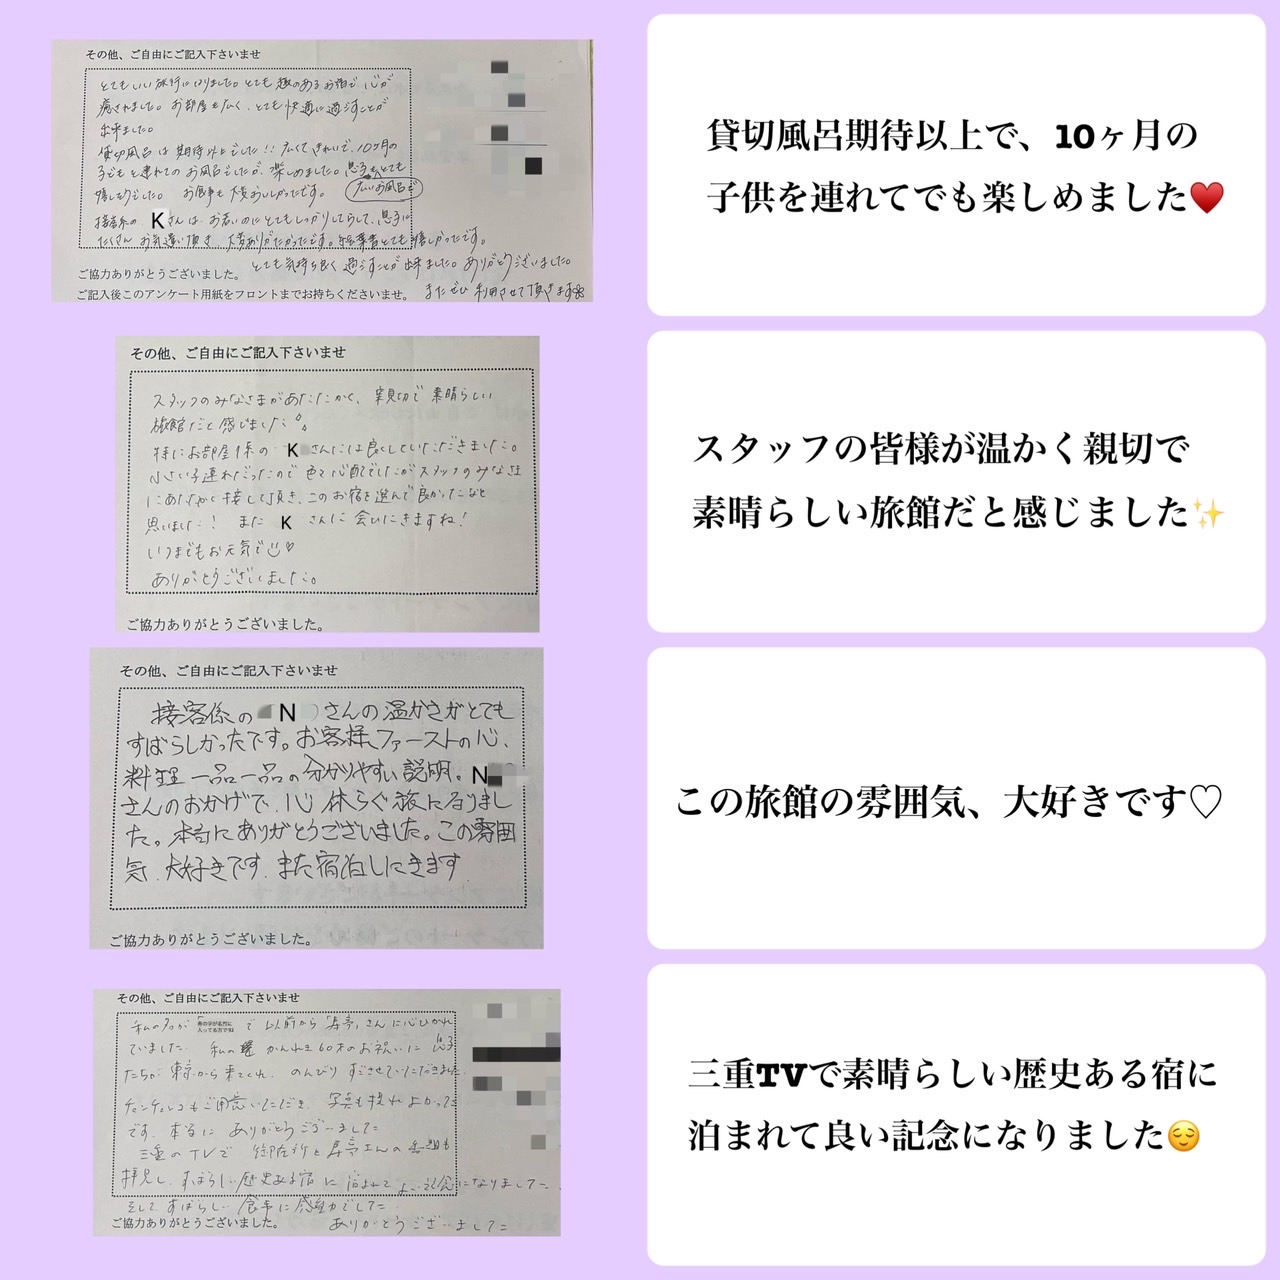 その他、ご自由にご記入下さいませ
とてもいい旅行になりました。とても趣のあるお宿で心が
癒されました。お部屋も広く、とても快適に過ごすことが
出来ました。
貸切風呂は期待以上でした!! 広くてきれいで、10ヶ月の
子どもを連れてのお風呂でしたが、楽しめました。息子もとても
嬉しそうでした。お食事も大変おいしかったです。
広いお風呂で
接客係の Kさんは、お若いのにとてもしっかりしてらして、息子に
たくさんお気遣い頂き、大変ありがたかったです。
とても嬉しかったです。
とても気持ち良く過ごすことが出来ました。ありがとうございました。
またぜひ利用させて頂きます
ご協力ありがとうございました。
ご記入後このアンケート用紙をフロントまでお持ちくださいませ。
貸切風呂期待以上で、10ヶ月の
子供を連れてでも楽しめました♥️
その他、ご自由にご記入下さいませ
スタッフのみなさまがあたたかく、親切で素晴らしい
旅館だと感じました
特にお部屋係の Kさんには良くしていただきました。
小さい子連れだったので色々心配でしたがスタッフのみなさま
にあたたかく接して頂き、このお宿を選んで良かったなと
思いました! また K さんに会いにきますね!
いつまでもお元気で♡
ありがとうございました。
ご協力ありがとうございました。
スタッフの皆様が温かく親切で
素晴らしい旅館だと感じました✨
その他、ご自由にご記入下さいませ
接客係の N さんの温かさがとても
すばらしかったです。お客様ファーストの心、
料理一品一品の分かりやすい説明。N
さんのおかげで、心休らぐ旅になりまし
た。本当にありがとうございました。この雰囲
気、大好きです。また宿泊しにきます
ご協力ありがとうございました。
この旅館の雰囲気、大好きです♡
その他、ご自由にご記入下さいませ
私の名が で以前から「寿亭」さんに心ひかれ
ていました。私の かんれき60才のお祝いに息子
たちが東京から来てくれ、のんびりすごさせていただきました。
チャンチャンコもご用意いただき、写真も撮れよかった
です。本当にありがとうございました
三重のTVで御在所と寿亭さんの も
拝見し、すばらしい歴史ある宿に泊まれてよい記念になりました
そしてすばらしい食事に感動でした
ありがとうございました
ご協力ありがとうございました。
三重TVで素晴らしい歴史ある宿に
泊まれて良い記念になりました😌